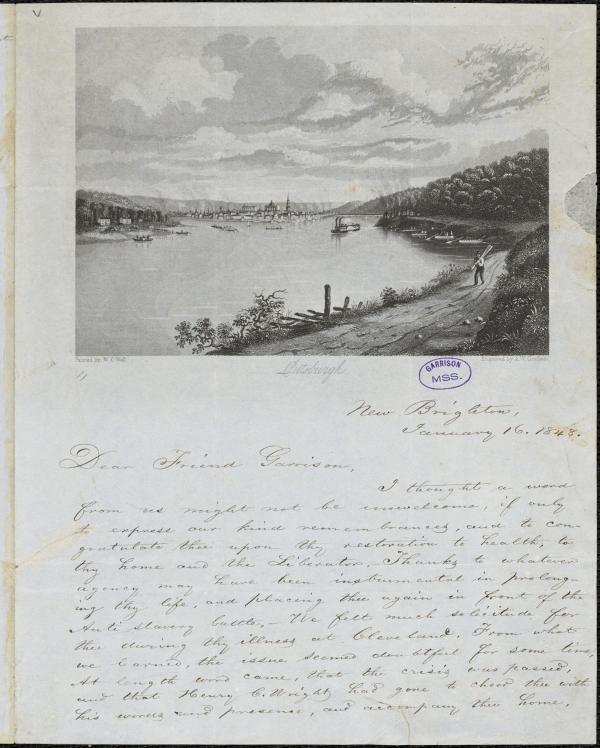 Painted by W. C. Wall
Engraved by A. W. Graham
Pittsburgh
GARRISON
MSS.
New Brighton,
January 16. 1848.
Dear Friend Garrison,
I thought a word
from us might not be unwelcome, if only
to express our kind remembrances, and to con-
gratulate thee upon thy restoration to health, to
thy home and the Liberator. Thanks to whatever
agency may have been instrumental in prolong-
ing thy life, and placing thee again in front of the
Anti slavery battle. – We felt much solicitude for
thee during thy illness at Cleveland. From what
we learned, the issue seemed doubtful for some time,
At length word came, that the crisis was passed,
and that Henry C. Wright had gone to cheer thee with
his words and presence, and accompany thee home,